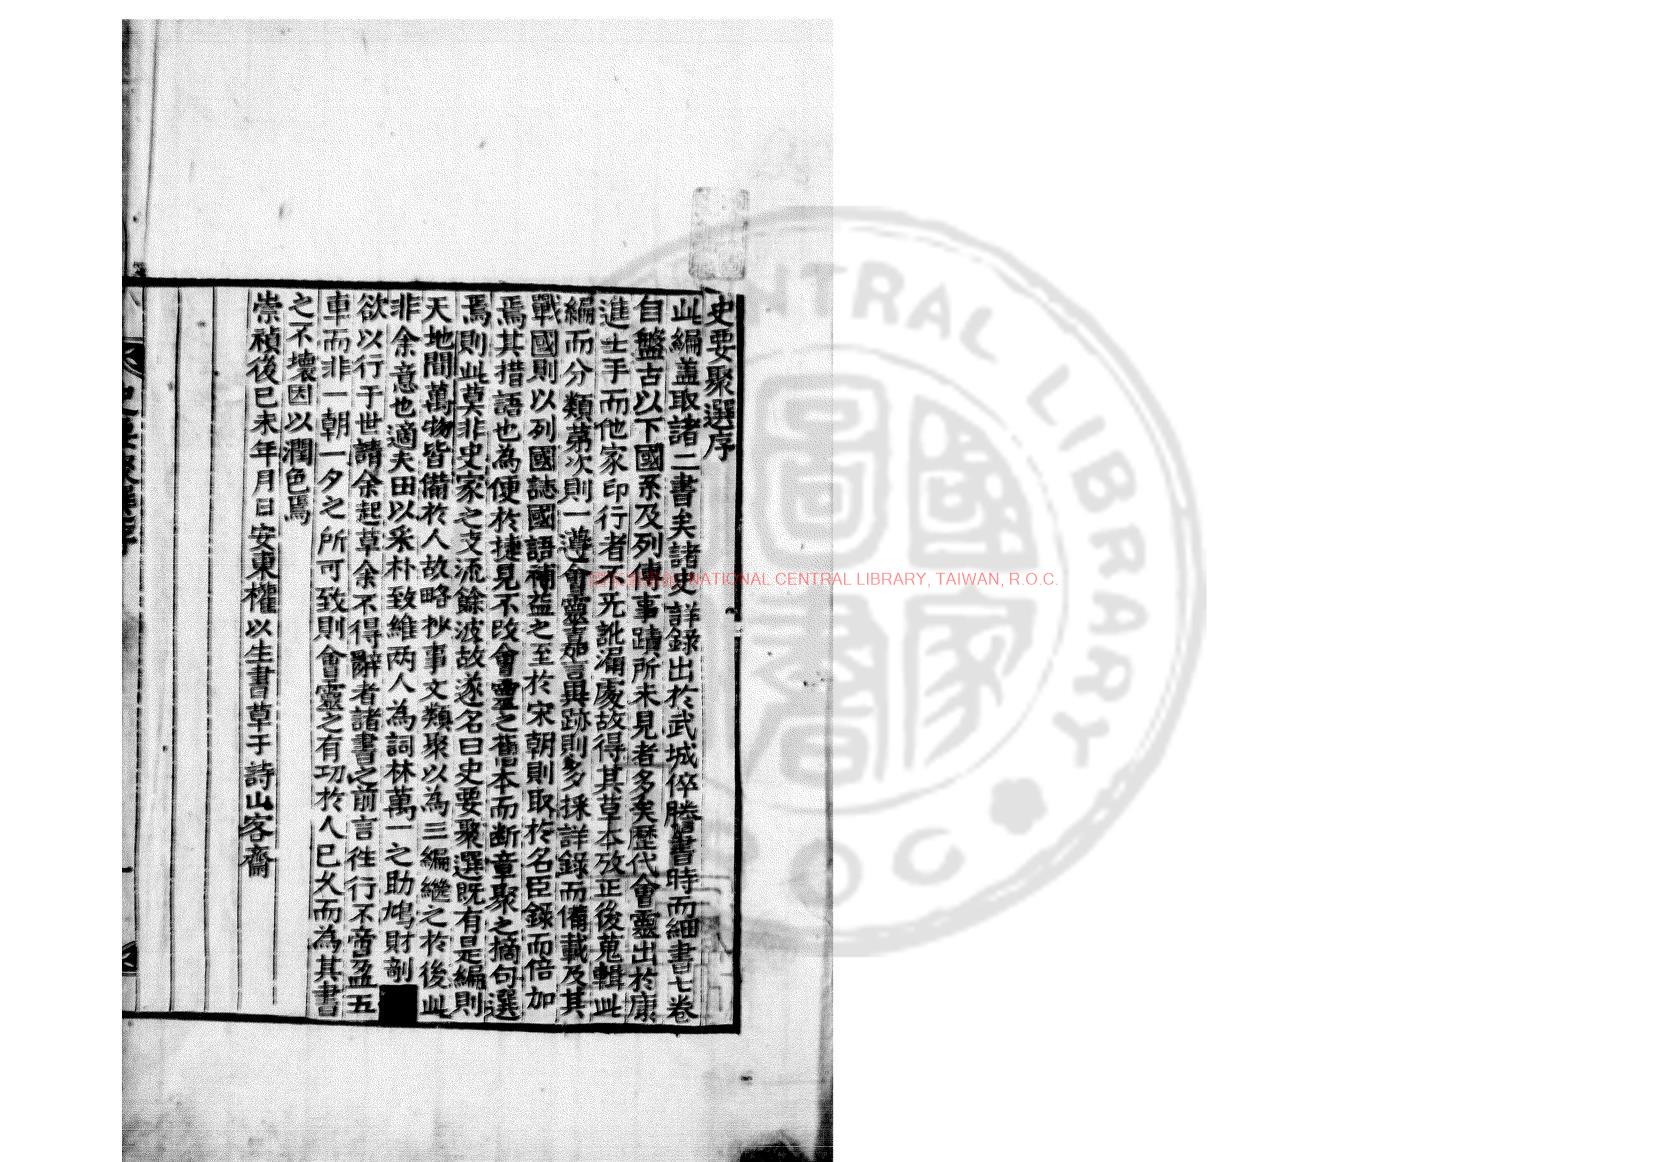 史要聚選序
此編盖取諸二書矣諸史詳錄出於武城倅勝書時而細書七卷
自盤古以下國系及列傳事蹟所未見者多矣歷代會靈出於康
進士手而他家印行者不旡訛漏處故得其草本攷正後蒐輯此
編而分類苐次則一遵會靈嘉言異跡則多採詳錄而備載及其
戰國則以列國誌國語補益之至於宋朝則取於名臣錄而倍加
焉其措語也為便於捷見不改會靈之舊本而断章聚之摘句選
焉則此莫非史家之支流餘波故遂名曰史要聚選既有是編則
天地間萬物皆備於人故略抄事文類聚以為三編継之於後此
非余意也適夫田以采朴致維两人為詞林萬一之助鳩財剞
欲以行于世請余起草余不得辭者諸書之前言徃行不啻盈五
車而非一朝一夕之所可致則會靈之有功於人已久而為其書
之不壊因以潤色焉
崇禎後已未年月日安東權以生書草于詩山客齋
史要聚選序
NATIONAL CENTRAL LIBRARY, TAIWAN, R.O.C.
CENTRAL LIBRARY